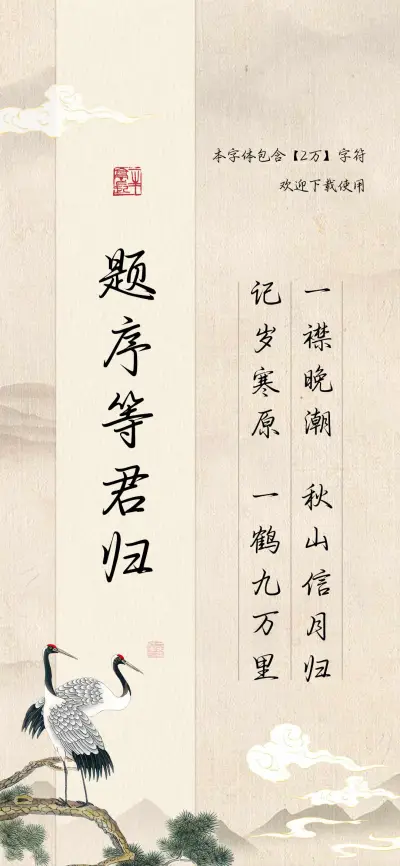 本字体包含【2万】字符
欢迎下载使用
题序等君归
一襟晚潮 秋山信月归
记岁寒原 一鹤九万里